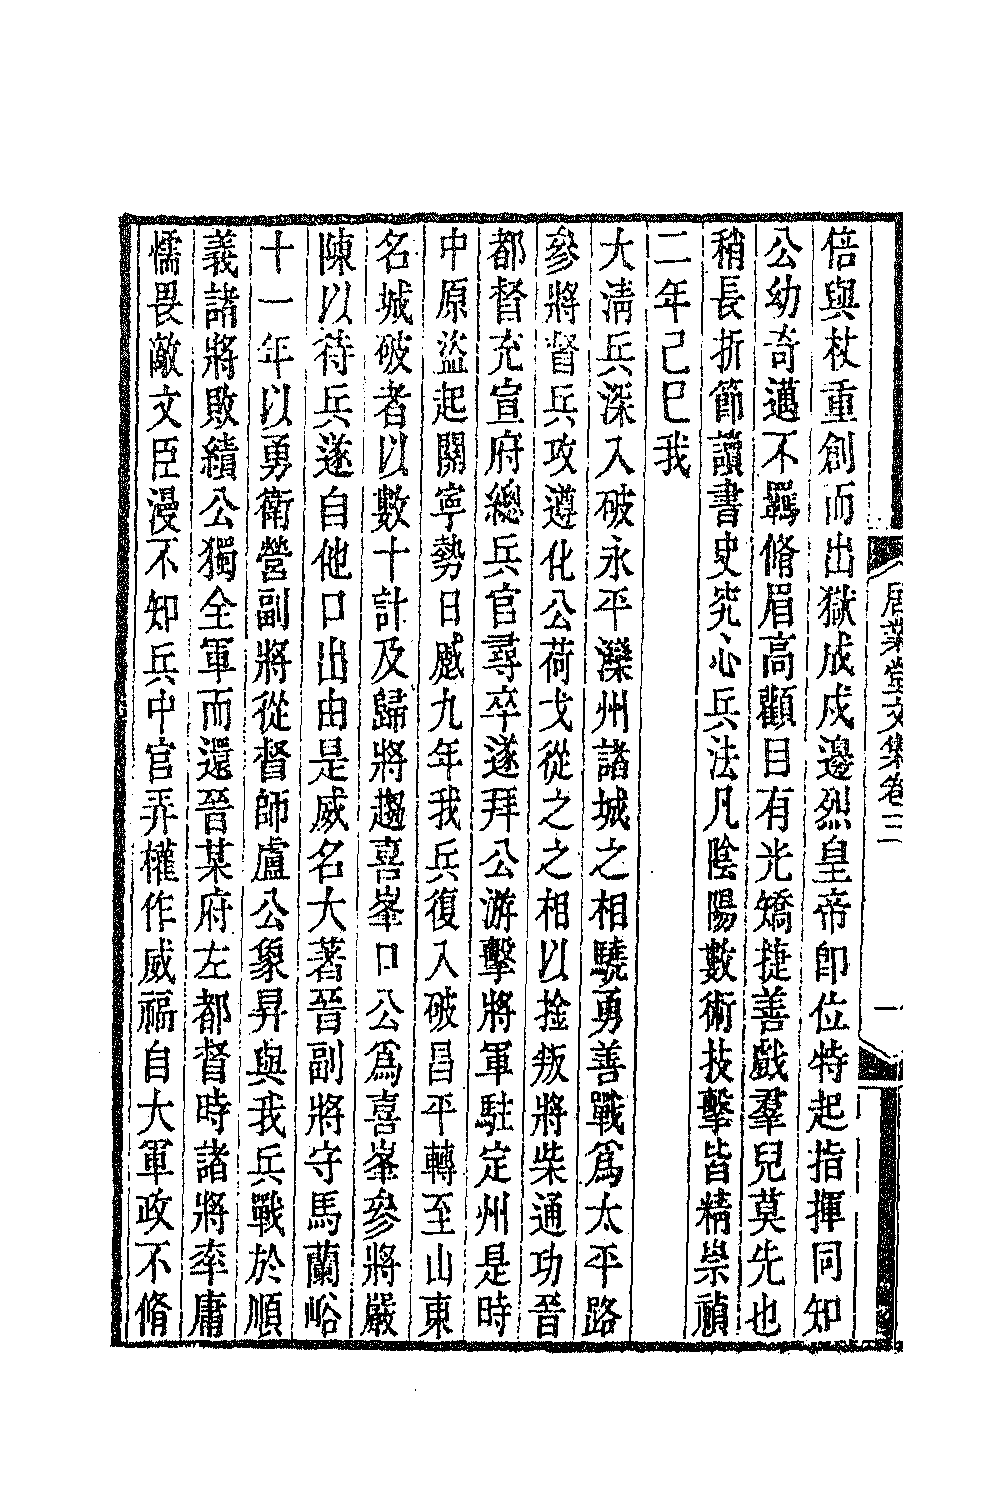 倍與杖重創而出獄成戍邊烈皇帝即位特起指揮同知
公幼奇邁不羈脩眉高顴目有光矯捷善戲羣兒莫先也
稍長折節讀書史究心兵法凡陰陽數術技擊皆精崇禎
二年己巳我
大清兵深入破永平灤州諸城之相驍勇善戰爲太平路
參將督兵攻遵化公荷戈從之之相以捡叛將柴通功晉
都督充宣府總兵官尋卒遂拜公游擊將軍駐定州是時
中原盜起關寧勢日慼九年我兵復入破昌平轉至山東
名城破者以數十計及歸將趨喜峯口公爲喜峯參將嚴
陳以待兵遂自他口出由是威名大著晉副將守馬蘭峪
十一年以勇衛營副將從督師盧公象昇與我兵戰於順
義諸將敗績公獨全軍而還晉某府左都督時諸將率庸
懦畏敵文臣漫不知兵中官弄權作威福自大軍政不脩
居業堂文集卷三
一